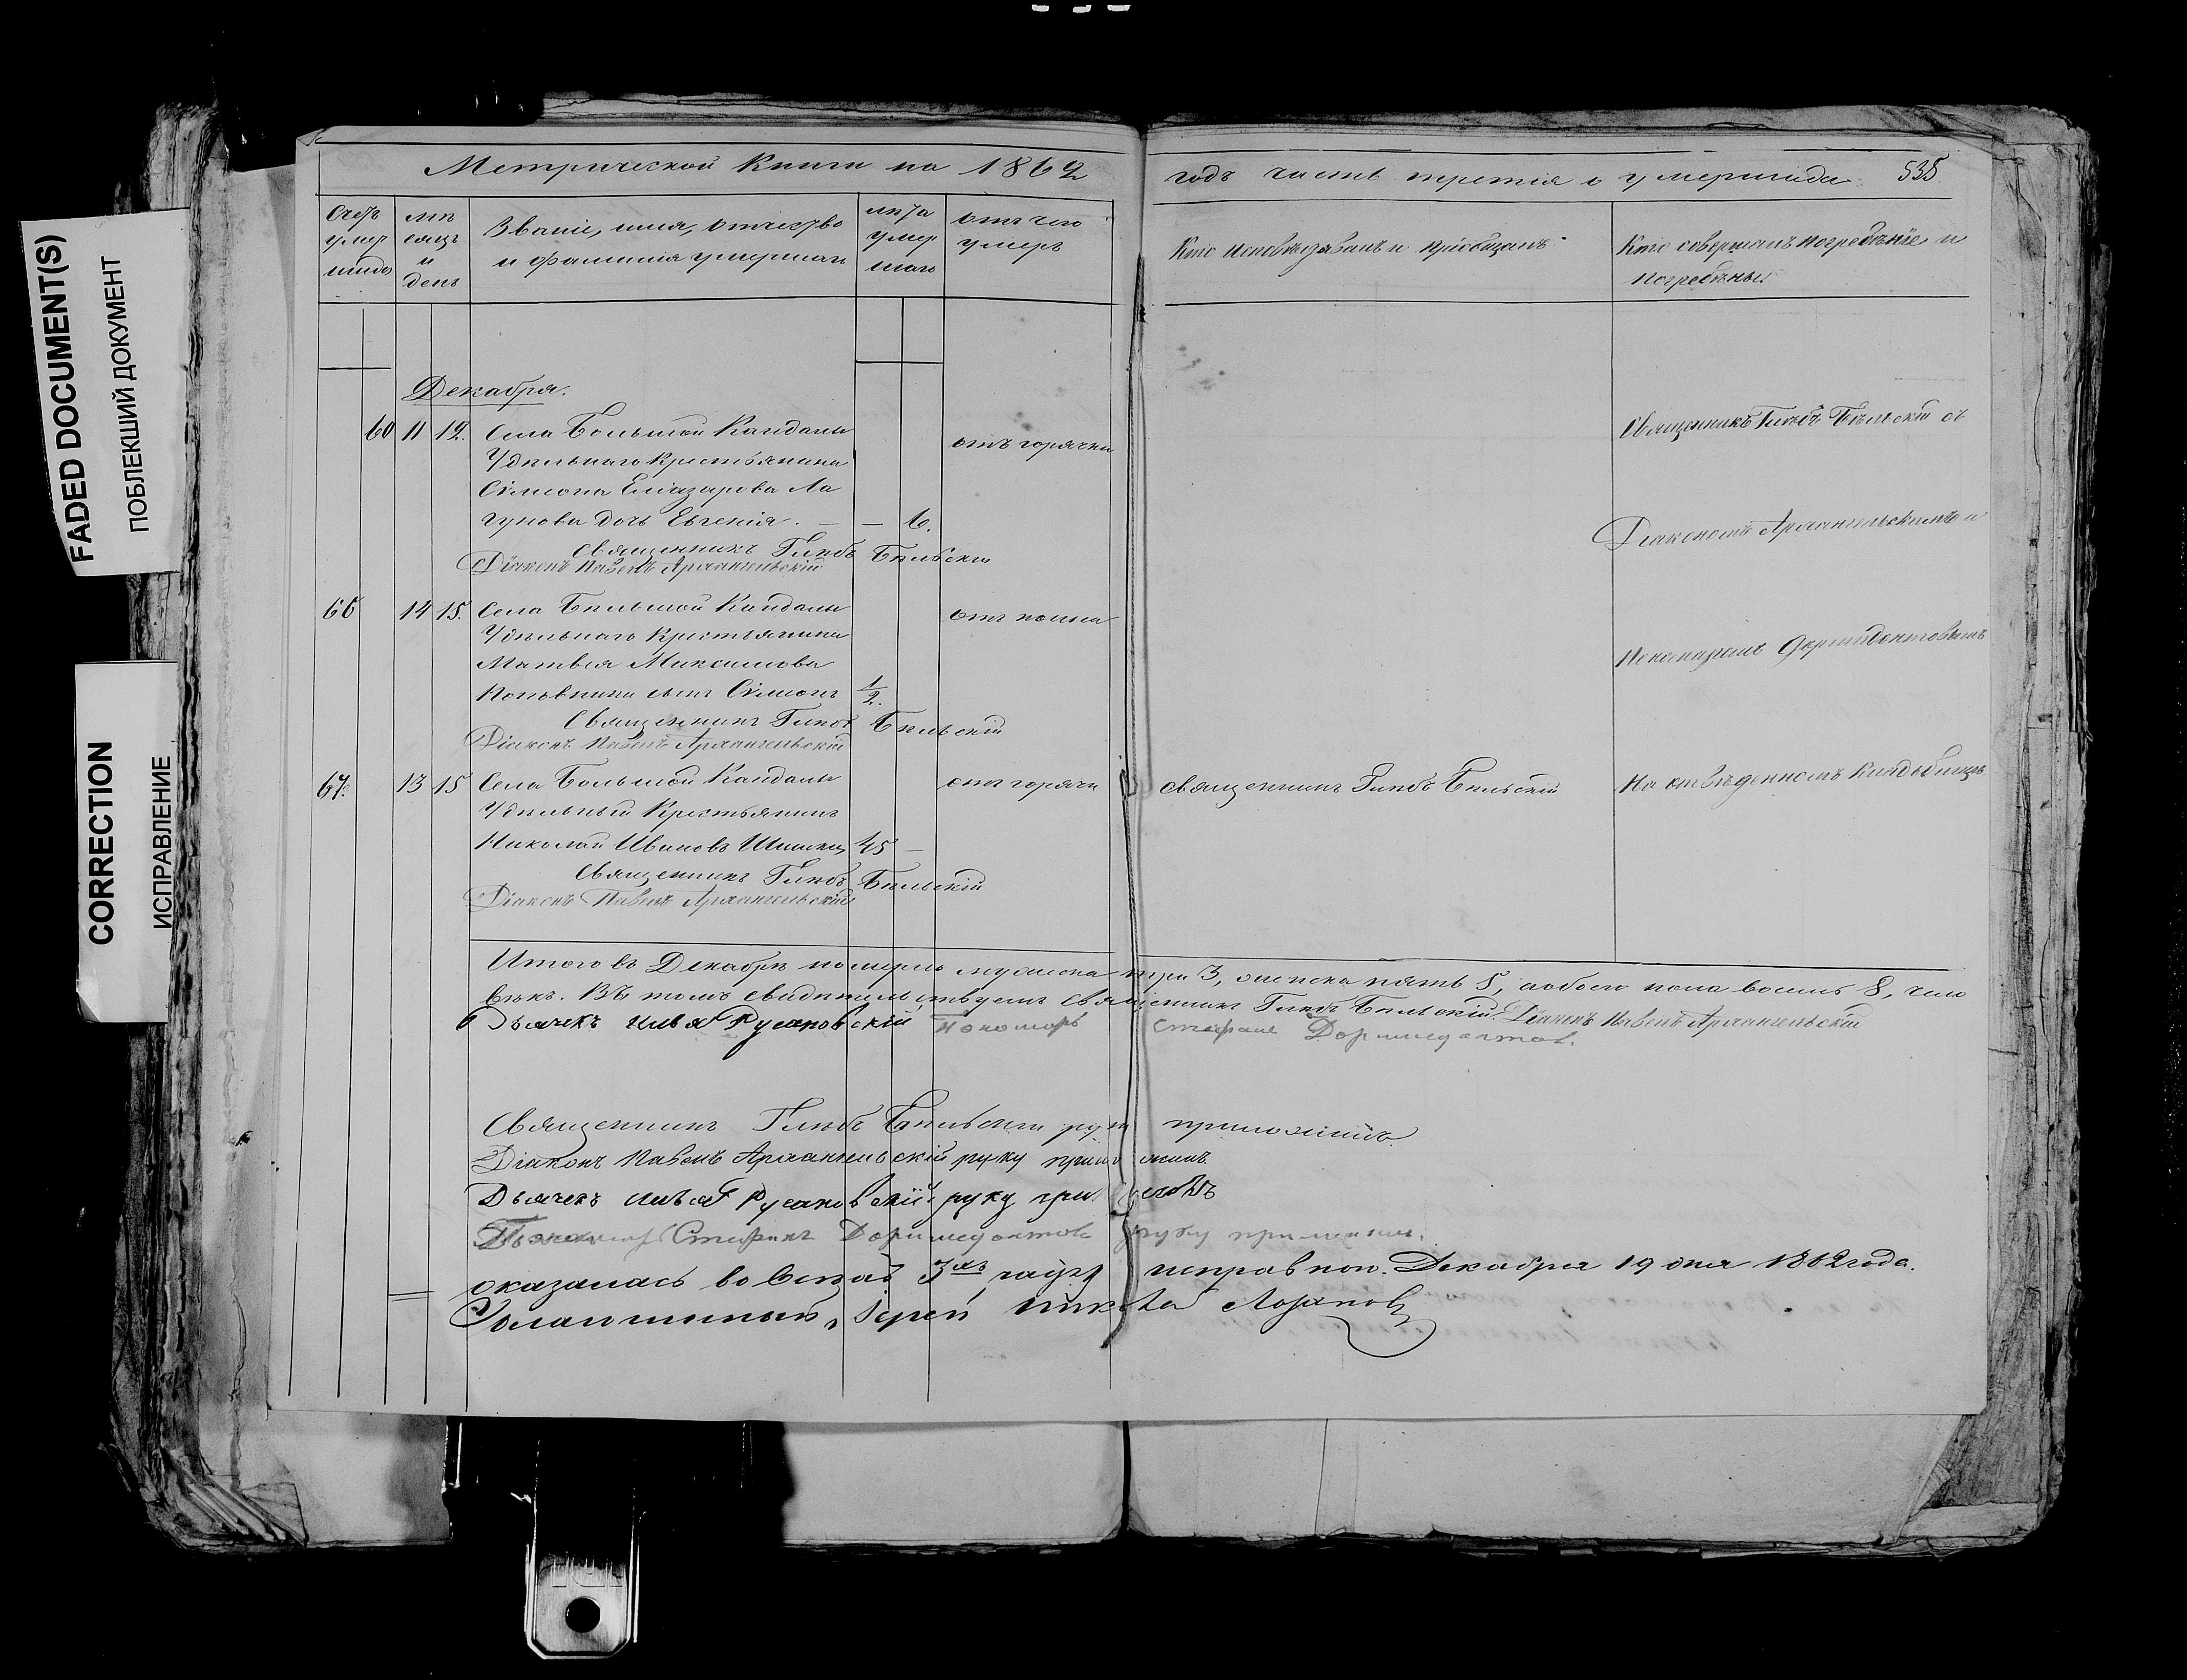 FADED DOCUMENT(S)
ПОБЛЕКШИЙ ДОКУМЕНТ
CORRECTION
ИСПРАВЛЕНИЕ
Метрической Книги на 1862
годъ часть третія о умершихъ 535
Счетъ умер шихъ
мѣ сяцъ и день
Званіе, имя, отчество и фамилія умершаго
лѣта умер шаго
отъ чего умеръ
Кто исповѣдывалъ и пріобщалъ
Кто совершалъ погребеніе и
погребены
Декабря.
60 11 12. Села Большой Кандалы отъ горячки
Удѣльнаго Крестьянина
Сѵмеона Елиазарова Ла
гунова дочь Евгенія. — — 6.
Священникъ Глѣбъ Бѣльскій
Діаконъ Павелъ Архангельскій
66 14 15. Села Большой Кандалы отъ поноса
Удѣльнаго Крестьянина
Матвѣя Максимова
сынъ Сѵмеонъ 1/2.
Священникъ Глѣбъ Бѣльскій
Діаконъ Павелъ Архангельскій
67. 13 15 Села Большой Кандалы отъ горячк
Удѣльный Крестьянинъ
Николай Ивановъ 45 —
Священникъ Глѣбъ Бѣльскій
Діаконъ Павелъ Архангельскій
Священникъ Глѣбъ Бѣльскій
Священникъ Глѣбъ Бѣльскій съ
Діакономъ Архангельскимъ и
Пономаремъ Доримедонтовымъ
На отведенномъ Кладбищѣ
Итого въ Декабрѣ померло мужеска три 3, женска пять 5, обоего пола восемь 8, чело
вѣкъ. Въ томъ свидѣтельствуемъ Священникъ Глѣбъ Бѣльскій. Діаконъ Павелъ Архангельскій
Дьячекъ Илья Русановскій Пономарь Стефанъ Доримедонтов.
Священникъ Глѣбъ Бѣльскій руку приложилъ
Діаконъ Павелъ Архангельскій руку приложилъ
Дьячекъ Илья Русановскій руку приложилъ
Пономарь Стефанъ Доримедонтовъ руку приложилъ.
оказалась во всѣхъ 3хъ частяхъ исправною. Декабря 19 дня 1862 года.
Благочинный, Іерей Николай Лозановъ